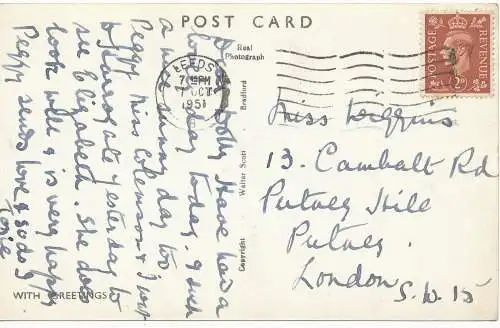 POST CARD
Dear Dolly Have had a
lovely day today. & such
a sunny day too
Peggy Miss & I went
to Harrogate yesterday to
see Elizabeth. She does
look well & is very happy
Peggy sends love & so do I
Josie
WITH GREETINGS
Real
Photograph
Copyright Walter Scott Bradford
LEEDS
PM
OCT
1951
POSTAGE
REVENUE
2D
Miss Wiggins
13. Cambalt Rd
Putney Hill
Putney.
London
S.W.15